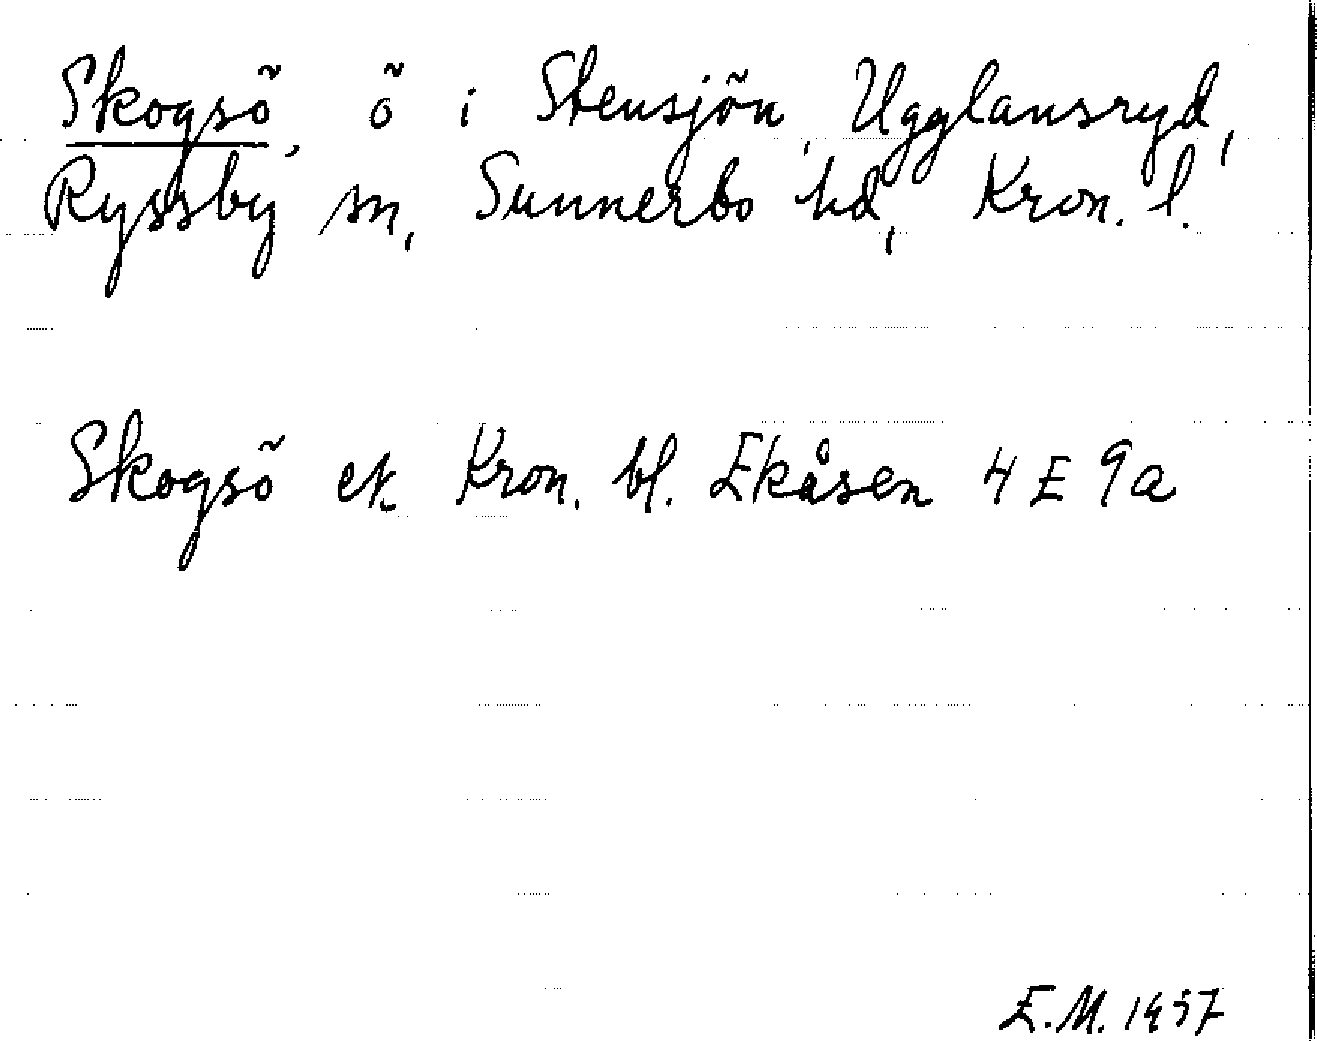 Skogsö, ö i Stensjön, Ugglansryd,
Ryssby sn, Sunnerbo hd, Kron. l.
Skogsö ek. Kron. bl. Ekåsen 4 E 9a
E.M. 1957